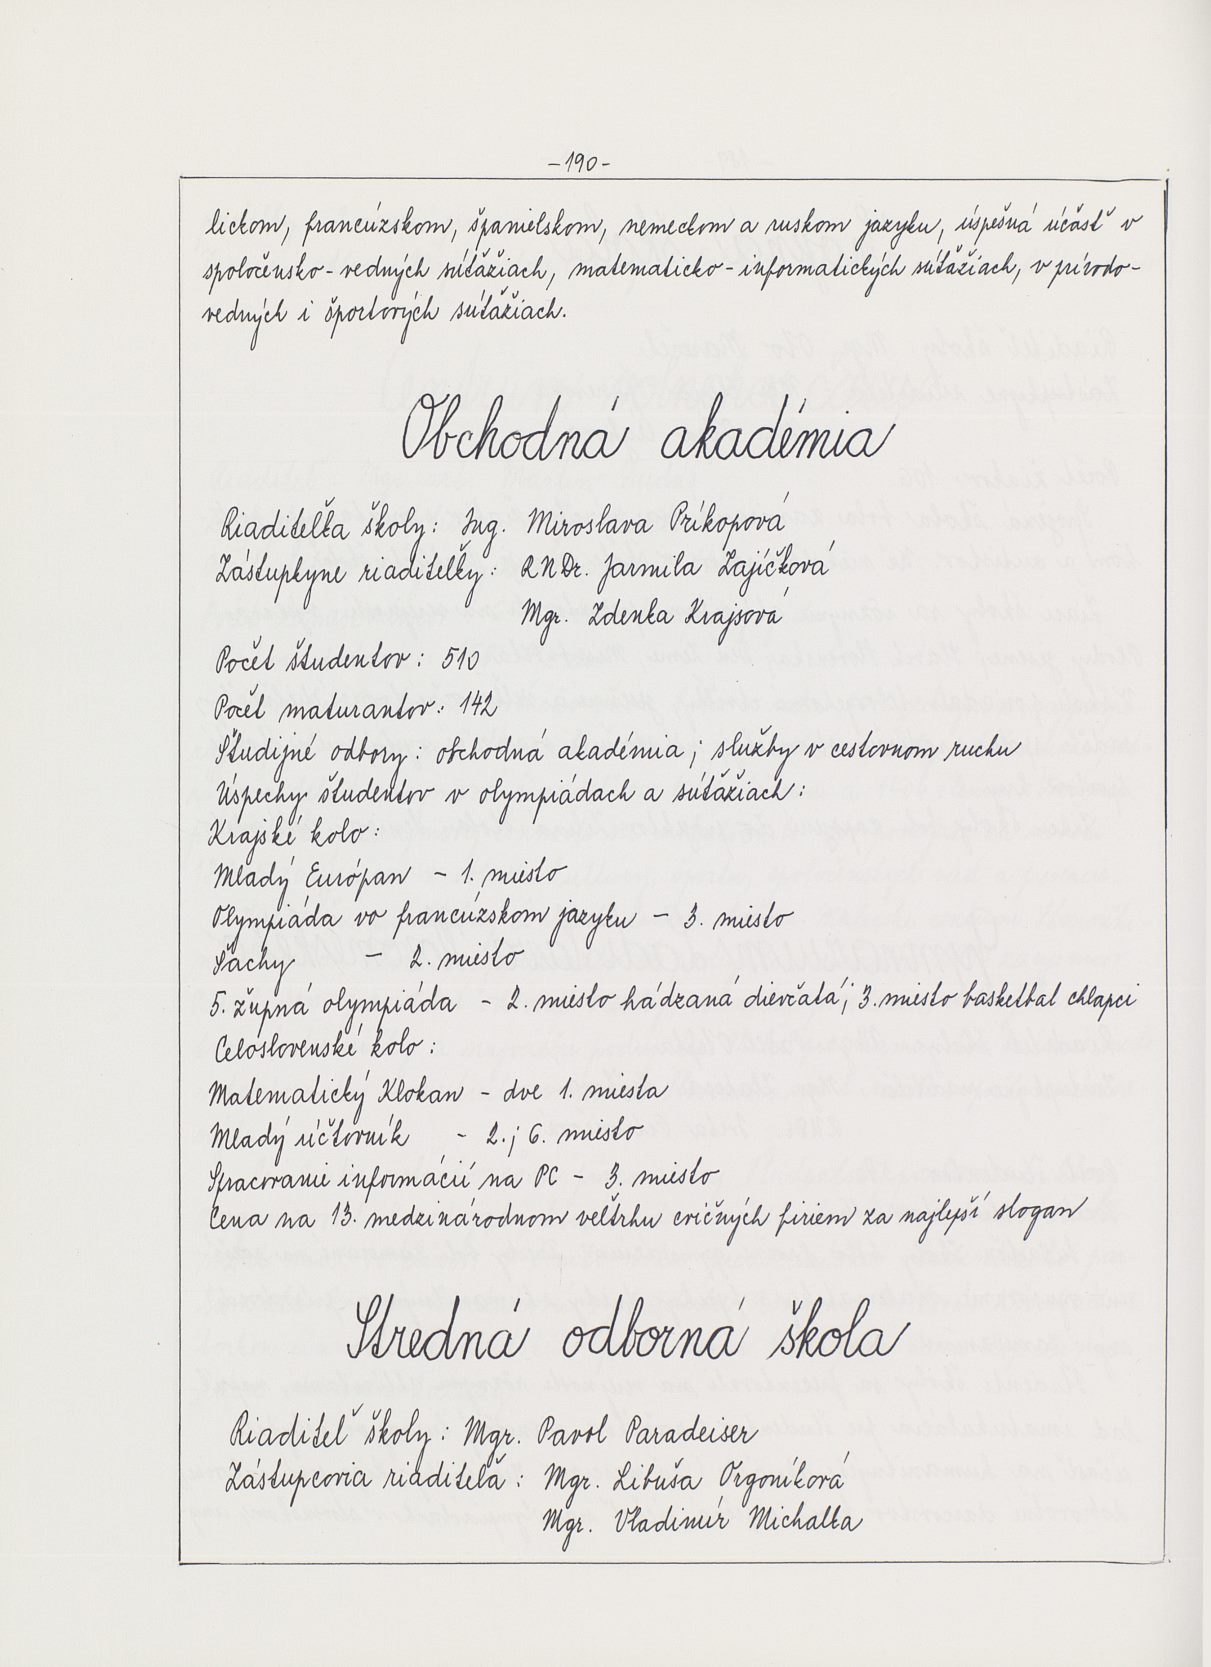 -190-
lickom, francúzskom, španielskom, nemeckom a ruskom jazyku, úspešná účasť v
spoločensko-vedných súťažiach, matematicko-informatických súťažiach, v prírodo-
vedných i športových súťažiach.
Obchodná akadémia
Riaditeľka školy: Ing. Miroslava Príkopová
Zástupkyne riaditeľky: RNDr. Jarmila Zajíčková
Mgr. Zdenka Krajsová
Počet študentov: 510
Počet maturantov: 142
Študijné odbory: obchodná akadémia; služby v cestovnom ruchu
Úspechy študentov v olympiádach a súťažiach:
Krajské kolo:
Mladý Európan - 1. miesto
Olympiáda vo francúzskom jazyku - 3. miesto
Šachy - 2. miesto
5. župná olympiáda - 2. miesto hádzaná dievčatá; 3. miesto basketbal chlapci
Celoslovenské kolo:
Matematický Klokan - dve 1. miesta
Mladý účtovník - 2.; 6. miesto
Spracovanie informácií na PC - 3. miesto
Cena na 13. medzinárodnom veľtrhu cvičných firiem za najlepší slogan
Stredná odborná škola
Riaditeľ školy: Mgr. Pavol Paradeiser
Zástupcovia riaditeľa: Mgr. Libuša Orgoníková
Mgr. Vladimír Michalka